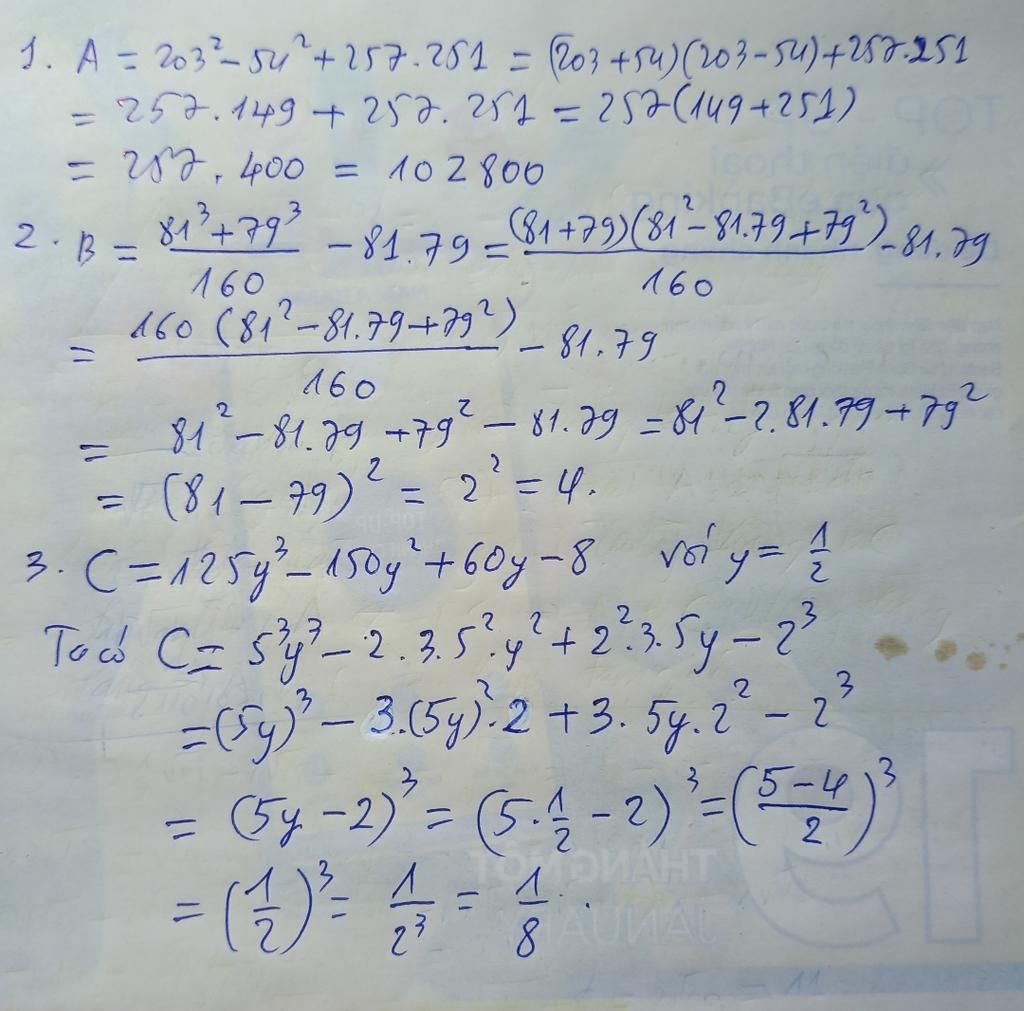 1. A = 203² - 54² + 257.251 = (203 + 54)(203 - 54) + 257.251
= 257.149 + 257.251 = 257(149 + 251)
= 257.400 = 102800
2. B = (81³ + 79³)/160 - 81.79 = (81 + 79)(81² - 81.79 + 79²)/160 - 81.79
= 160(81² - 81.79 + 79²)/160 - 81.79
= 81² - 81.79 + 79² - 81.79 = 81² - 2.81.79 + 79²
= (81 - 79)² = 2² = 4.
3. C = 125y³ - 150y² + 60y - 8 với y = 1/2
Ta có C = 5³y³ - 2.3.5².y² + 2².3.5y - 2³
= (5y)³ - 3.(5y)².2 + 3.5y.2² - 2³
= (5y - 2)³ = (5.1/2 - 2)³ = ((5 - 4)/2)³
= (1/2)³ = 1/2³ = 1/8.
THÁNG MỘT
JANUARY
19